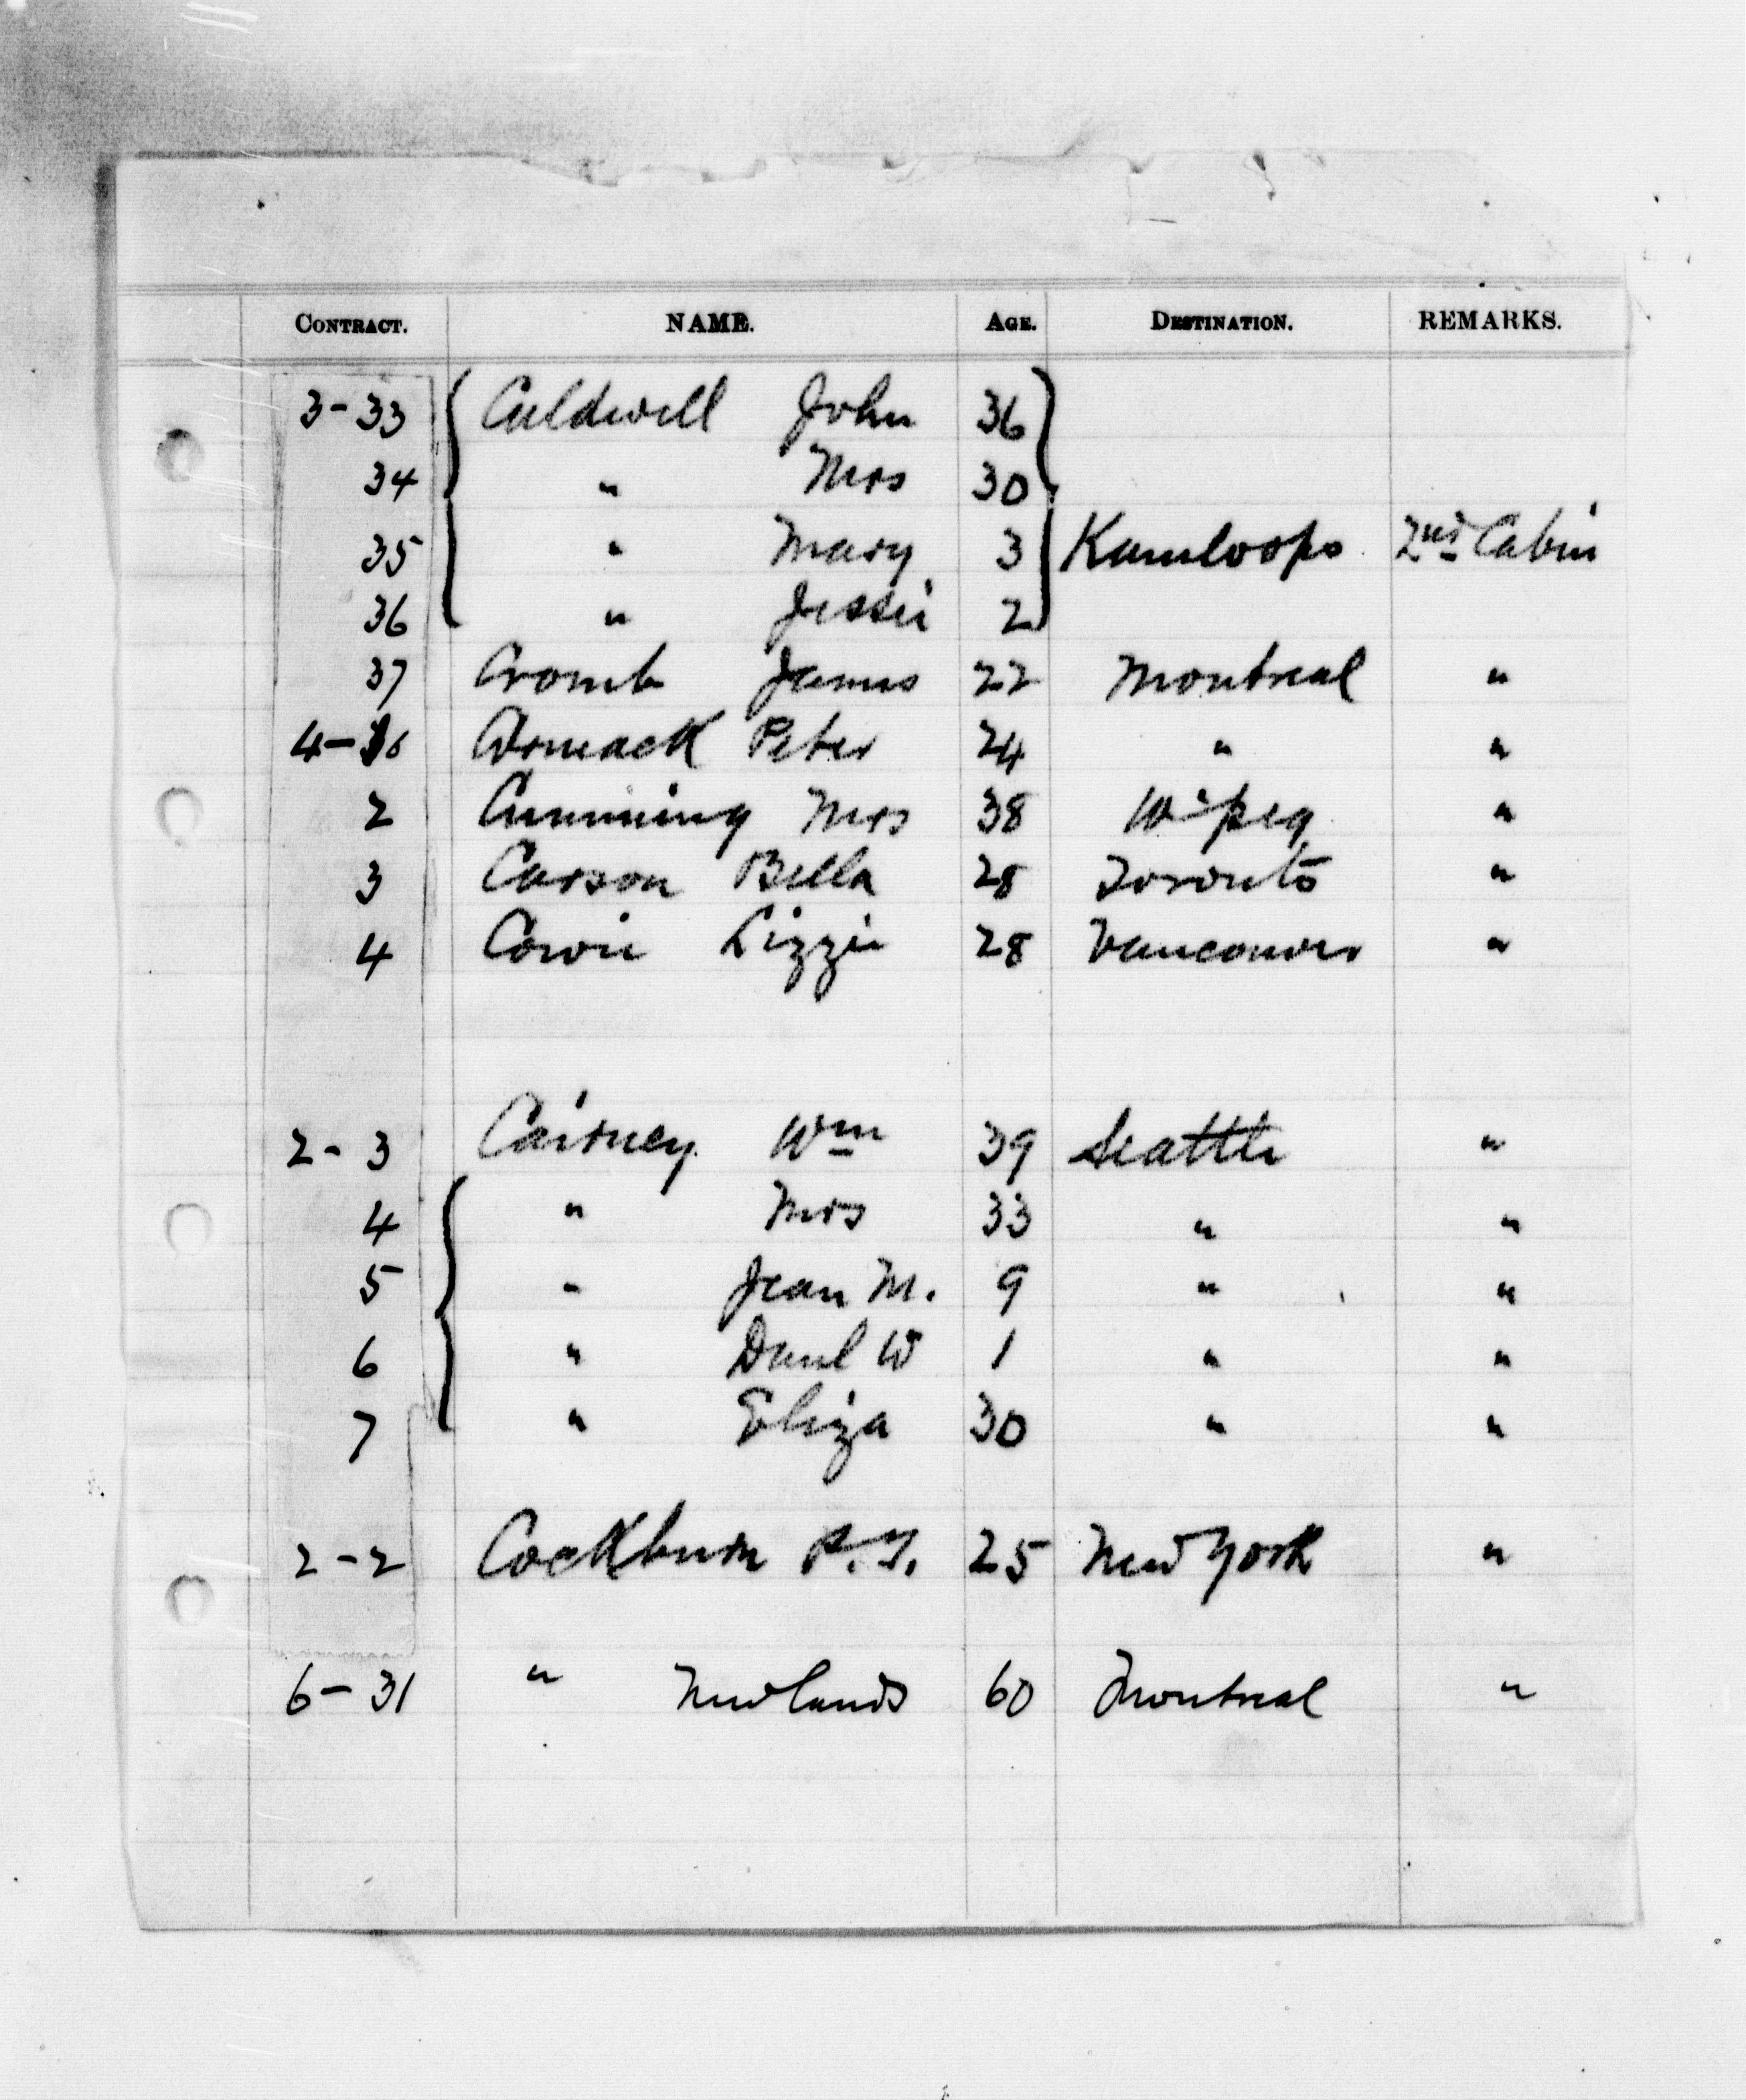 CONTRACT. NAME. AGE. DESTINATION. REMARKS.
3-33 Caldwell John 36
34 " Mrs 30
35 " Mary 3 Kamloops 2nd Cabin
36 " Jessie 2
37 Cromb James 22 Montreal "
4- Cormack Peter 24 " "
2 Cumming Mrs 38 W'peg "
3 Carson Bella 28 Toronto "
4 Cowie Lizzie 28 Vancouver "
2-3 Cairney Wm 39 Seattle "
4 " Mrs 33 " "
5 " Jean M. 9 " "
6 " Danl W 1 " "
7 " Eliza 30 " "
2-2 Cockburn 25 New York "
6-31 " Newlands 60 Montreal "